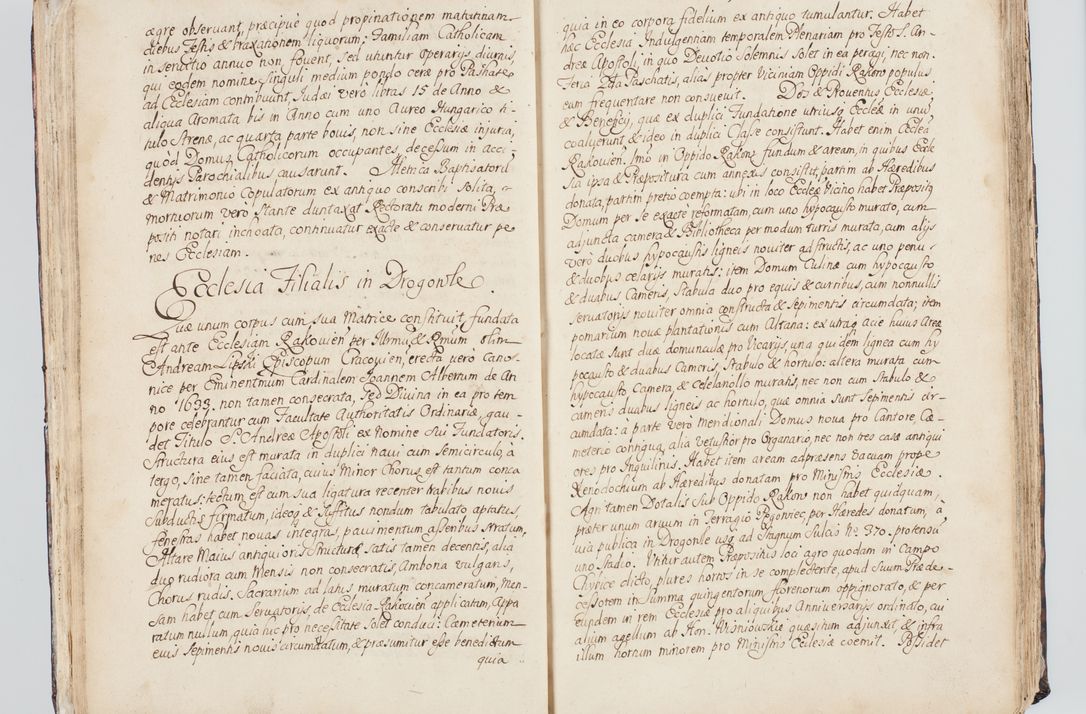 ægre observant, præcipuè quod propinationem matutinam
diebus Festis & braxationem liquorum: Familiam Catholicam
in servitio annuo non fovent, sed utuntur Operarijs diurnis,
qui eodem nomine singuli medium pondo ceræ pro Paschate
ad Ecclesiam contribuunt, Judæi verò libras 15 de Anno &
aliqua Aromata bis in Anno cum uno Aureo Hungarico ti-
tulo Strenæ, ac quarta parte bovis, non sine Ecclesiæ injuria,
quòd Domus Catholicorum occupantes, decessum in acci-
dentijs Parochialibus causarunt. Metrica Baptisatorū
& Matrimonio Copulatorum ex antiquo conscribi solita,
mortuorum verò stante duntaxat Rectoratu moderni Præ
positi notari inchoata, continuatur exactè & conservatur pe
nes Ecclesiam.
Ecclesia Filialis in Drogowle.
Quæ unum corpus cum sua Matrice constituit, fundata
est ante Ecclesiam Rakovien̄ per Illrmū & Rmum olim
Andream Lipski Episcopum Cracovien̄, erecta verò Cano-
nicè per Eminentmum Cardinalem Joannem Albertum de An
no 1633. non tamen consecrata, sed Divina in ea pro tem
pore celebrantur cum Facultate Authoritatis Ordinariæ, gau-
det Titulo S. Andreæ Apostoli ex nomine sui Fundatoris.
Structura eius est murata in duplici navi cum semicirculo, à
tergo, sine tamen faciata, cuius Minor Chorus est tantum conca
meratus: tectum est cum sua ligatura recenter trabibus novis
subductis firmatum, ideoq & suffitus nondum tabulato aptatus,
fenestras habet novas integras, pavimentum asseribus stratum,
Altare Maius antiquioris structuræ, satis tamen decentis, alia
duo rudiora cum Mensis non consecratis, Ambona vulgaris,
Chorus rudis. Sacrarium ad latus muratum concameratum, Men-
sam habet cum Servatorijs de Ecclesia Rakovien̄ applicatum, Appa
ratum nullum, quia hic pro necessitate solet conduci: Cæmeterium
eius sepimentis novis circumdatum, & præsumitur esse benedictum
quia
quia in eo corpora fidelium ex antiquo tumulantur. Habet
hæc Ecclesia Indulgentiam temporalem Plenariam pro Festo S. An-
dreæ Apostoli, in quo Devotio Solemnis solet in ea peragi, nec non
Feria 2da Paschatis, alias propter Viciniam Oppidi Rakow populus
eam frequentare non consuevit. Dos & Proventus Ecclesiæ
& Beneficij, quæ ex duplici Fundatione utriusq Ecclæ in unū
coaluerunt, & ideo in duplici Classe consistunt. Habet enim Ecclea
Rakovien̄. Imo in Oppido Rakow fundum & aream, in quibus Eccle
sia ipsa & Præpositura cum annexis consistit, partim ab Hæredibus
donata, partim pretio coempta: ubi in loco Ecclæ vicino habet Præpositq
Domum per se exactè reformatam, cum uno hypocausto murato, cum
adjuncta camera & Bibliotheca per modum turris murata, cum alijs
verò duobus hypocaustis ligneis noviter adstructis, ac uno penu
& duobus celarijs muratis: item Domum Culinæ cum hypocausto
& duabus Cameris, stabula duo pro equis & curribus, cum nonnullis
servatorijs noviter omnia constructa & sepimentis circumdata; item
pomarium novæ plantationis cum Altana: ex utraq acie huius Areæ
locatæ sunt duæ domunculæ pro Vicarijs, una quidem lignea cum hy
pocausto & duabus Cameris, Stabulo & hortulo: altera murata cum
hypocausto, Camera, & cellariollo muratis, nec non cum Stabulo &
cameris duabus ligneis ac hortulo, quæ omnia sunt sepimentis cir-
cumdata: à parte verò meridionali Domus nova pro Cantore, Cæ-
meterio contigua, alia vetustior pro Organario, nec non tres casæ antiqui
ores pro Inquilinis. Habet item aream adpræsens vacuam prope
Xenodochium ab Hæredibus donatam pro Ministris Ecclesiæ.
Agri tamen Dotalis sub Oppido Rakow non habet quidquam,
præter unum arvum in Terragio Pogoniec, per Hæredes donatum, à
via publica in Drogowle usq ad Stagnum Sulcis No 370. protensū
uno Stadio. Utitur autem Præpositus loci agro quodam in Campo
Chycice dicto, plures hortos in se complectente, apud suum Præde-
cessorem in summa quingentorum florenorum oppignorato, & per
eundem in rem Ecclesiæ pro aliquibus Anniversarijs ordinato, cui
alium agellum ab Hon. Wisniowskie quæsitum adjunxit & infra
illum hortum minorem pro Ministris Ecclesiæ coemit. Possidet